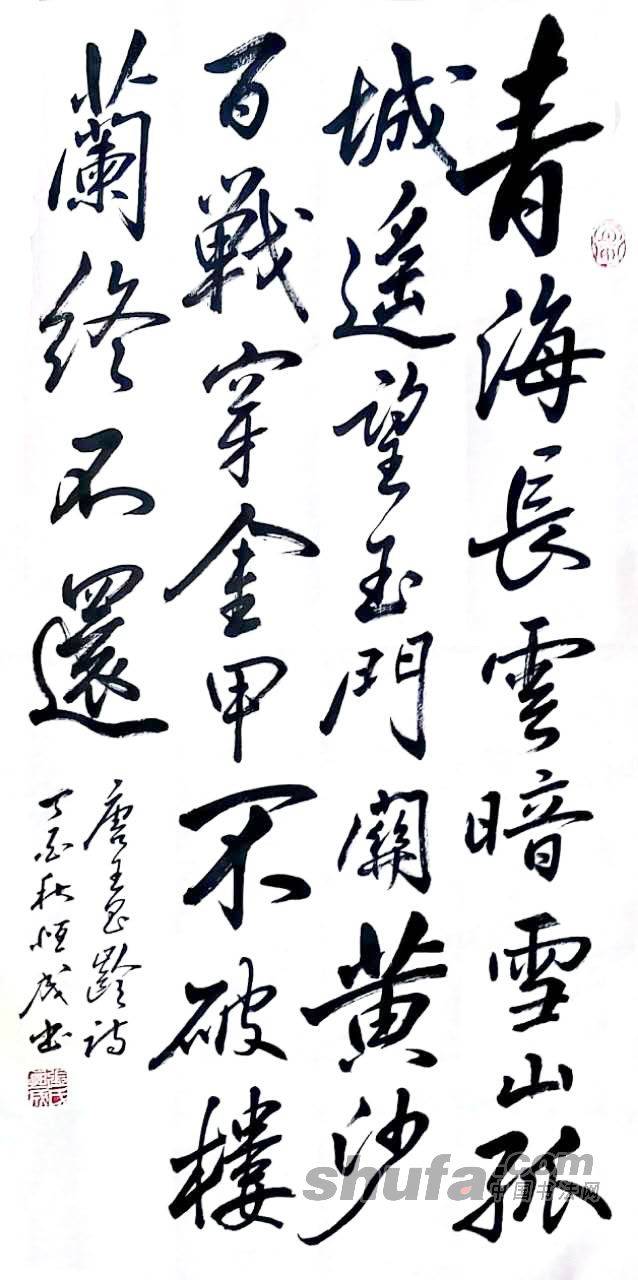 青海長雲暗雪山孤
城遙望玉門關黄沙
百戰穿金甲不破樓
蘭終不還
唐王昌齡诗
丁酉秋恒成书
shufa.com
中国书法网